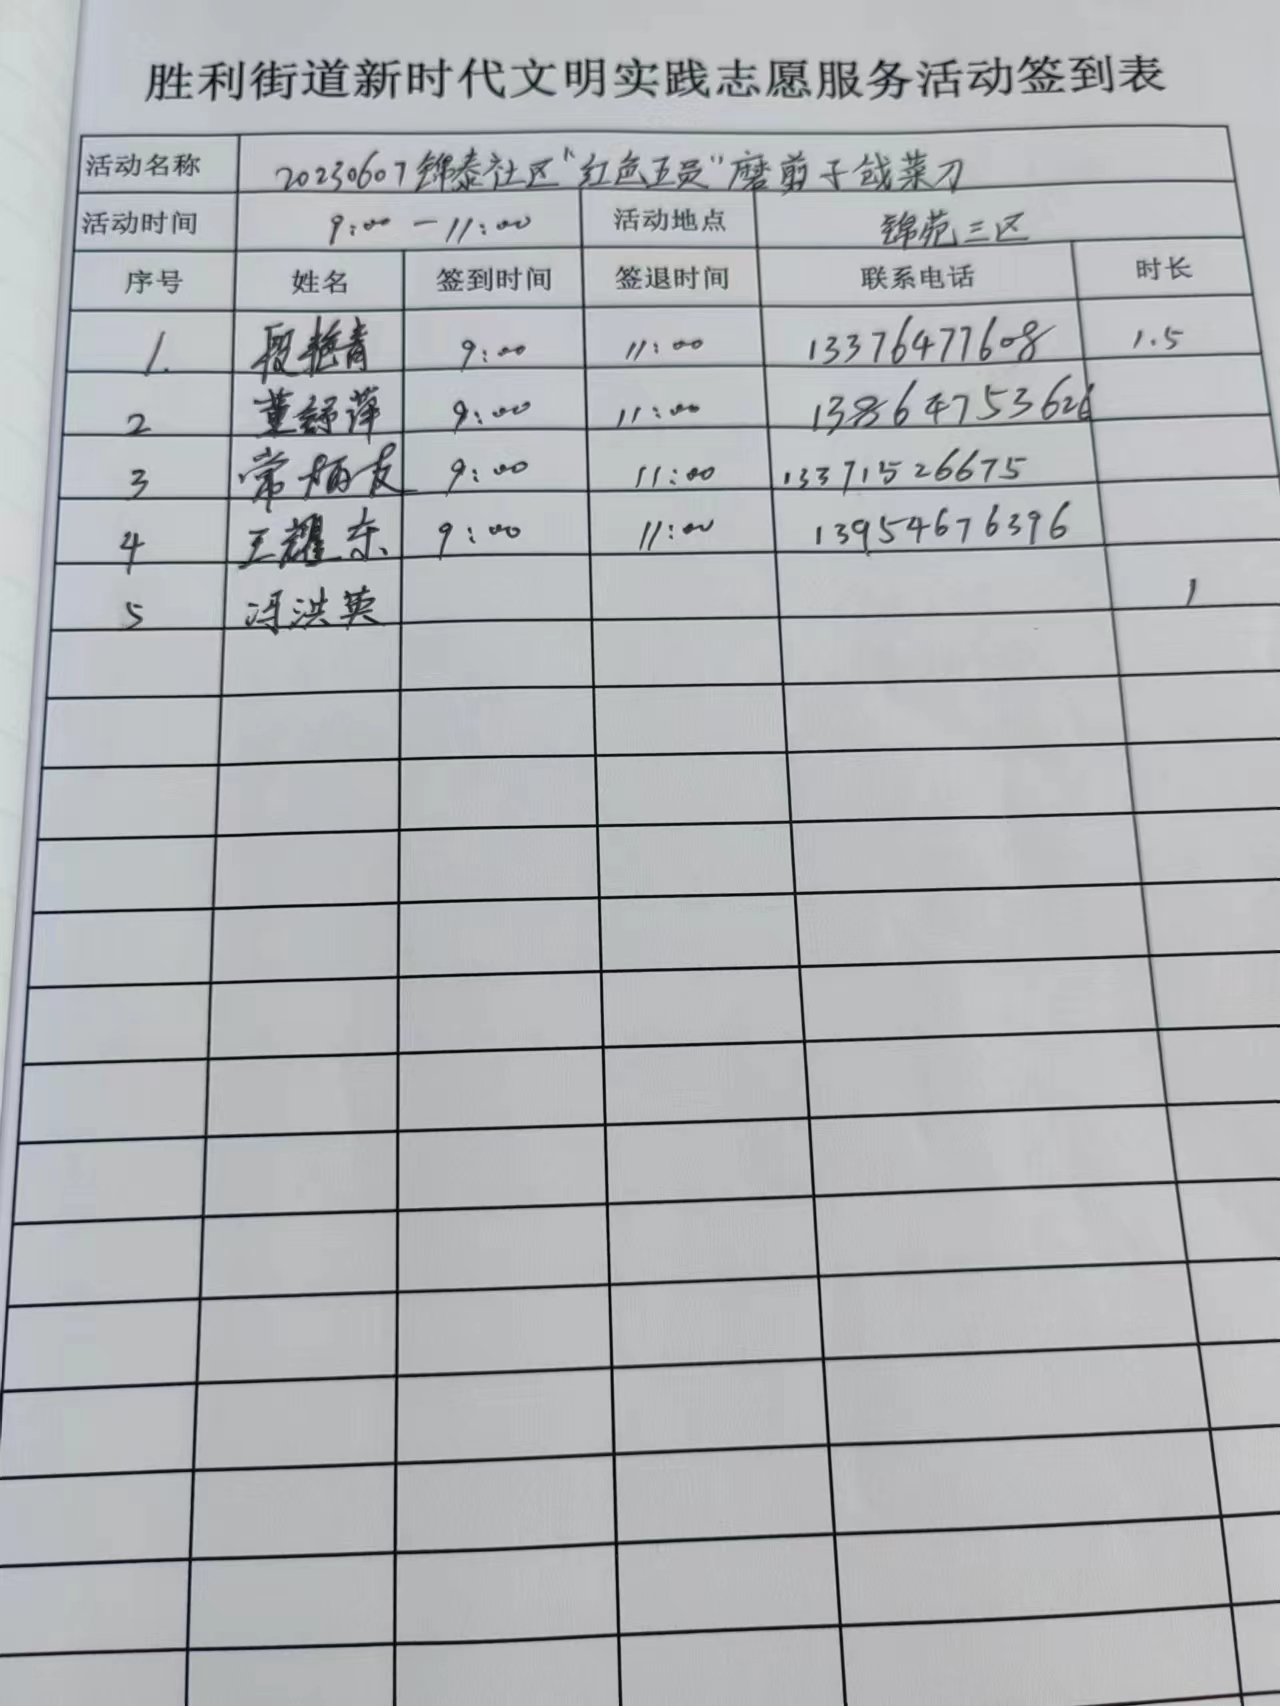 胜利街道新时代文明实践志愿服务活动签到表
活动名称 20230607锦泰社区“红色五员”磨剪子戗菜刀
活动时间 9:00-11:00 活动地点 锦苑三区
序号 姓名 签到时间 签退时间 联系电话 时长
1. 段艳青 9:00 11:00 13376477608 1.5
2 董舒萍 9:00 11:00 13864753626
3 常炳友 9:00 11:00 13371526675
4 王耀东 9:00 11:00 13954676396
5 冯洪英 1